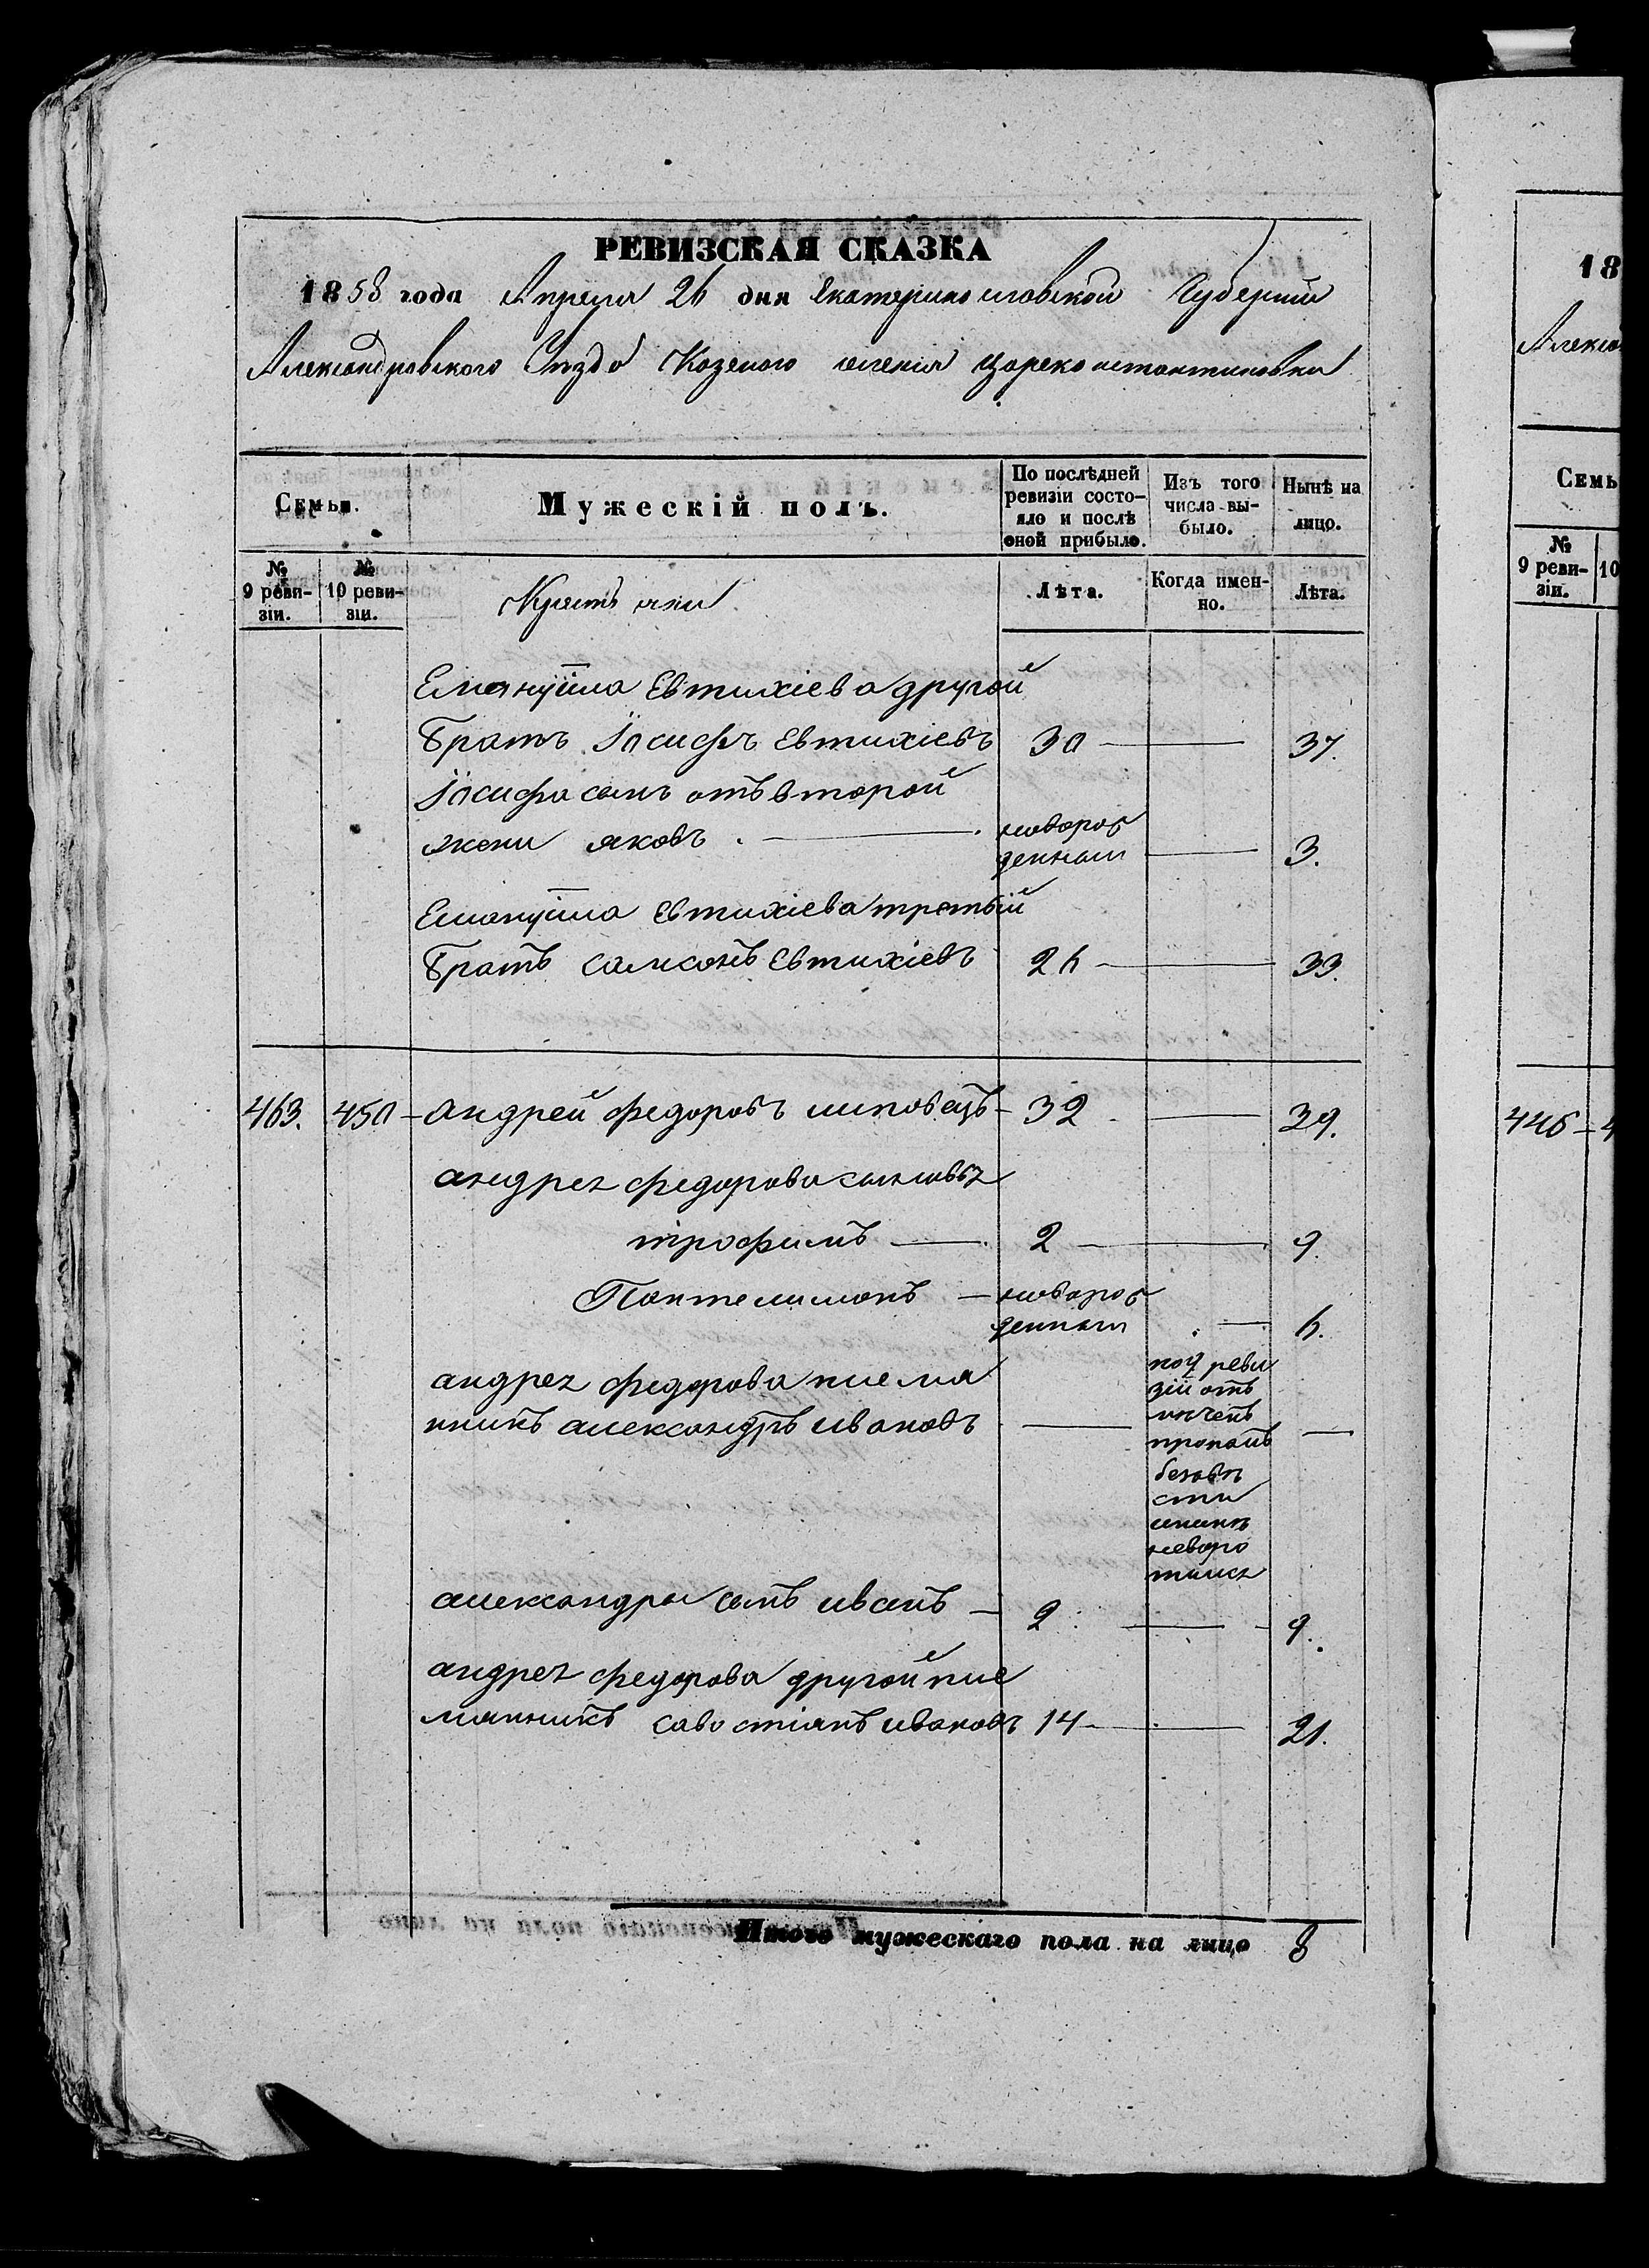 РЕВИЗСКАЯ СКАЗКА
1858 года Апреля 26 дня Екатеринославской Губернии
Александровского Уезда Казеного селенія Цареконстантиновки
Семьи.
Мужескій полъ.
По послѣдней ревизіи состояло и послѣ оной прибыло.
Изъ того числа выбыло.
Нынѣ на лицо.
№ 9 ревизіи.
№ 10 ревизіи.
Лѣта.
Когда именно.
Лѣта.
Емануйла Евтихіева другой
Братъ Іосифъ Евтихіевъ 30 — 37.
Іосифа сынъ отъ второй
жены яковъ . — новорожденный — 3.
Емануйла Евтихіева третьій
Братъ самсонъ Евтихіевъ 26 — 33.
463. 450 — андрей федоровъ липовецъ — 32 — 39.
андрея федорова сыновья
трофимъ — 2 — 9.
Пантелимонъ — новорожденный — 6.
андрея федорова племя
никъ александръ ивановъ — по 9 ревизіи отъ
пропалъ
безвѣсти
и
неворо
тился
александры сынъ иванъ — 2 — 9.
андрея федорова другой пле
мянникъ савостіянъ ивановъ 14 — 21.
Итого мужескаго пола на лицо 8
18
Алексан
Семь
№ 9 ревизіи.
10
446 — 4